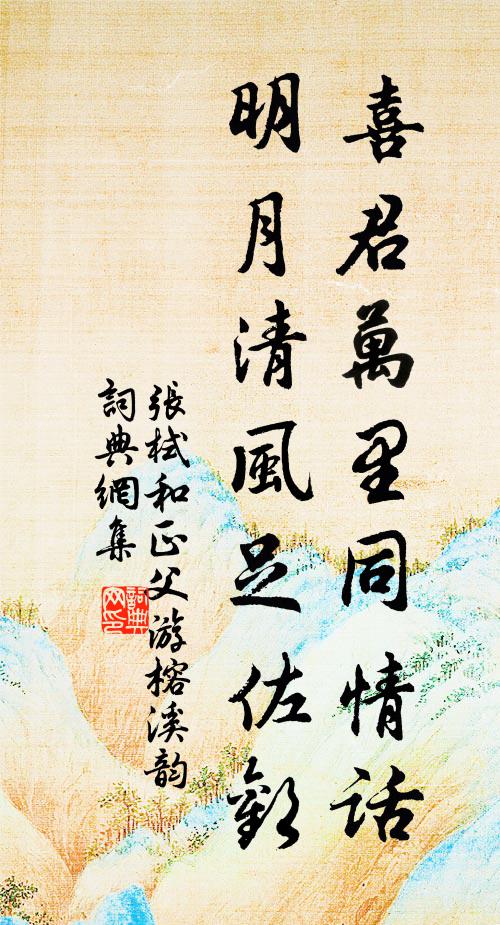 喜君萬里同情話
明月清風足佐歡
張栻和正父游榕溪韵
詞典網集
詞典网印